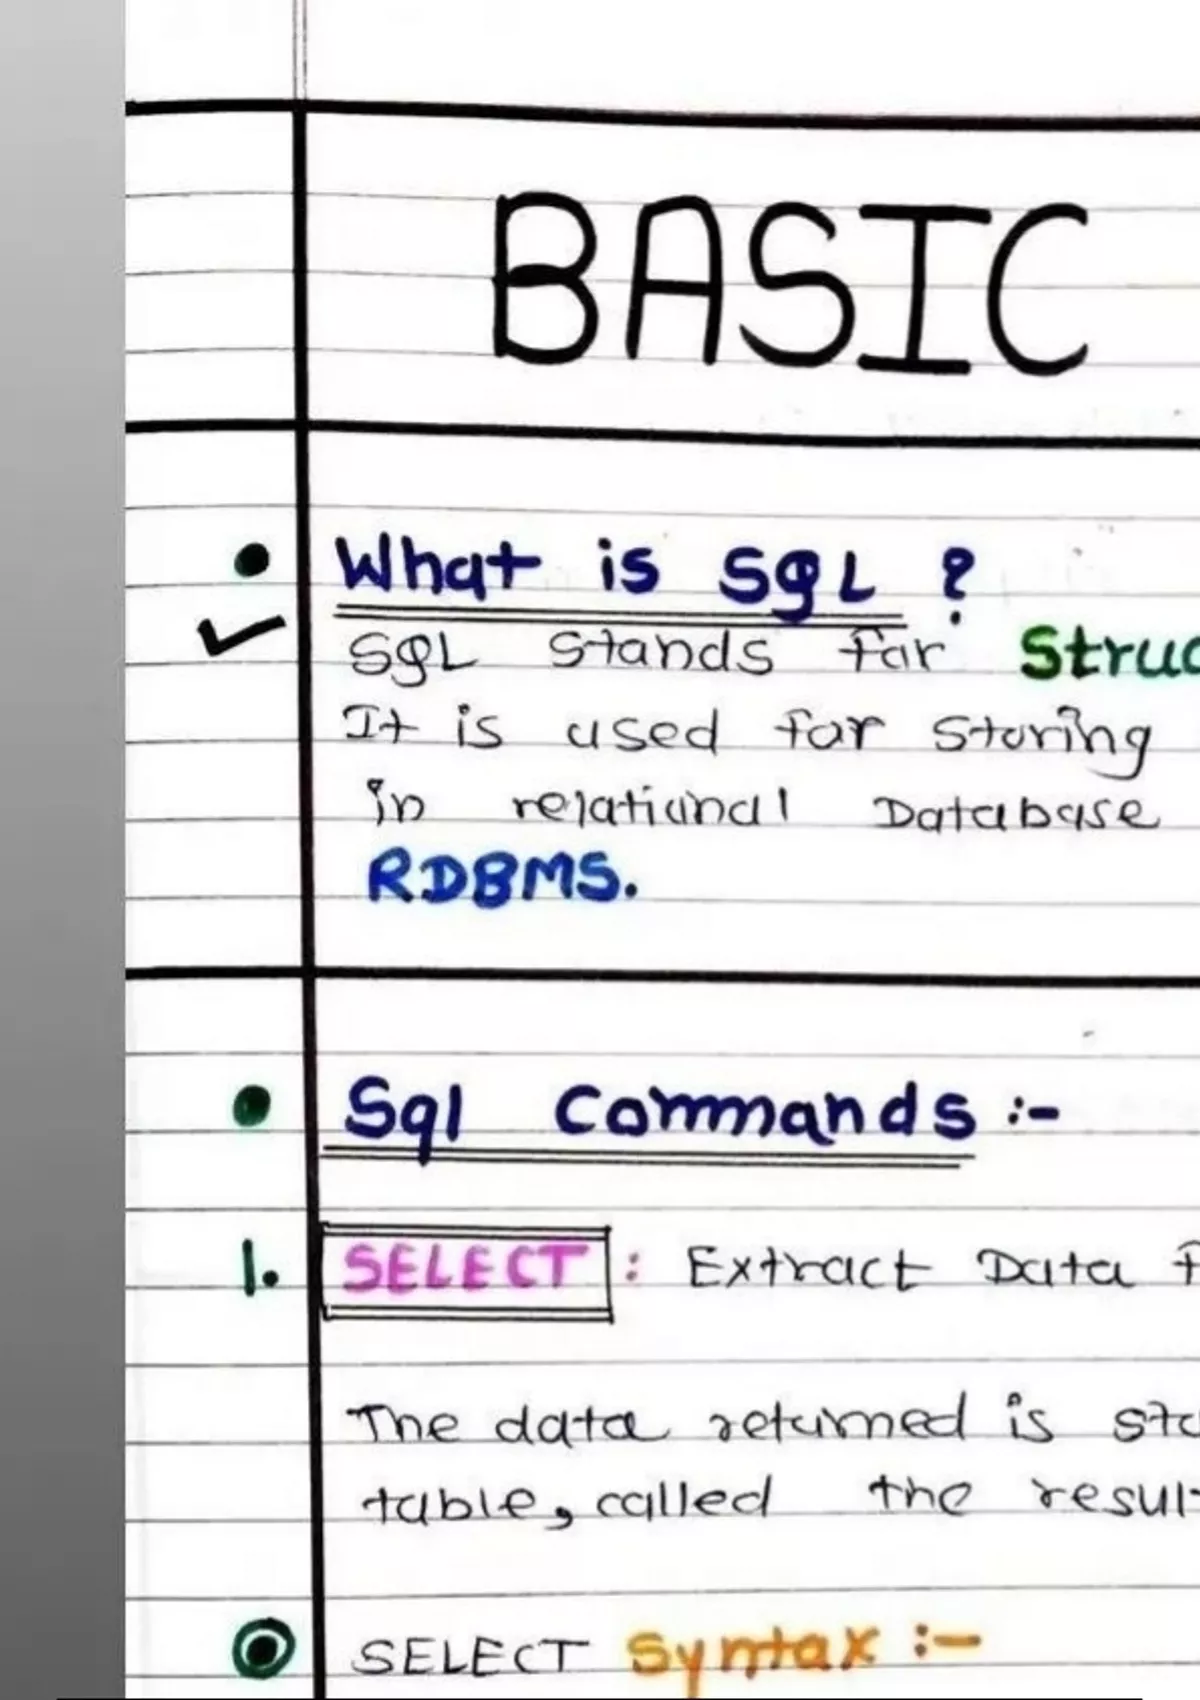 BASIC
What is SQL ?
SQL Stands for Struc
It is used for Storing
in relational Database
RDBMS.
Sql Commands :-
1. SELECT : Extract Data f
The data returned is sto
table, called the resul
SELECT Syntax :-